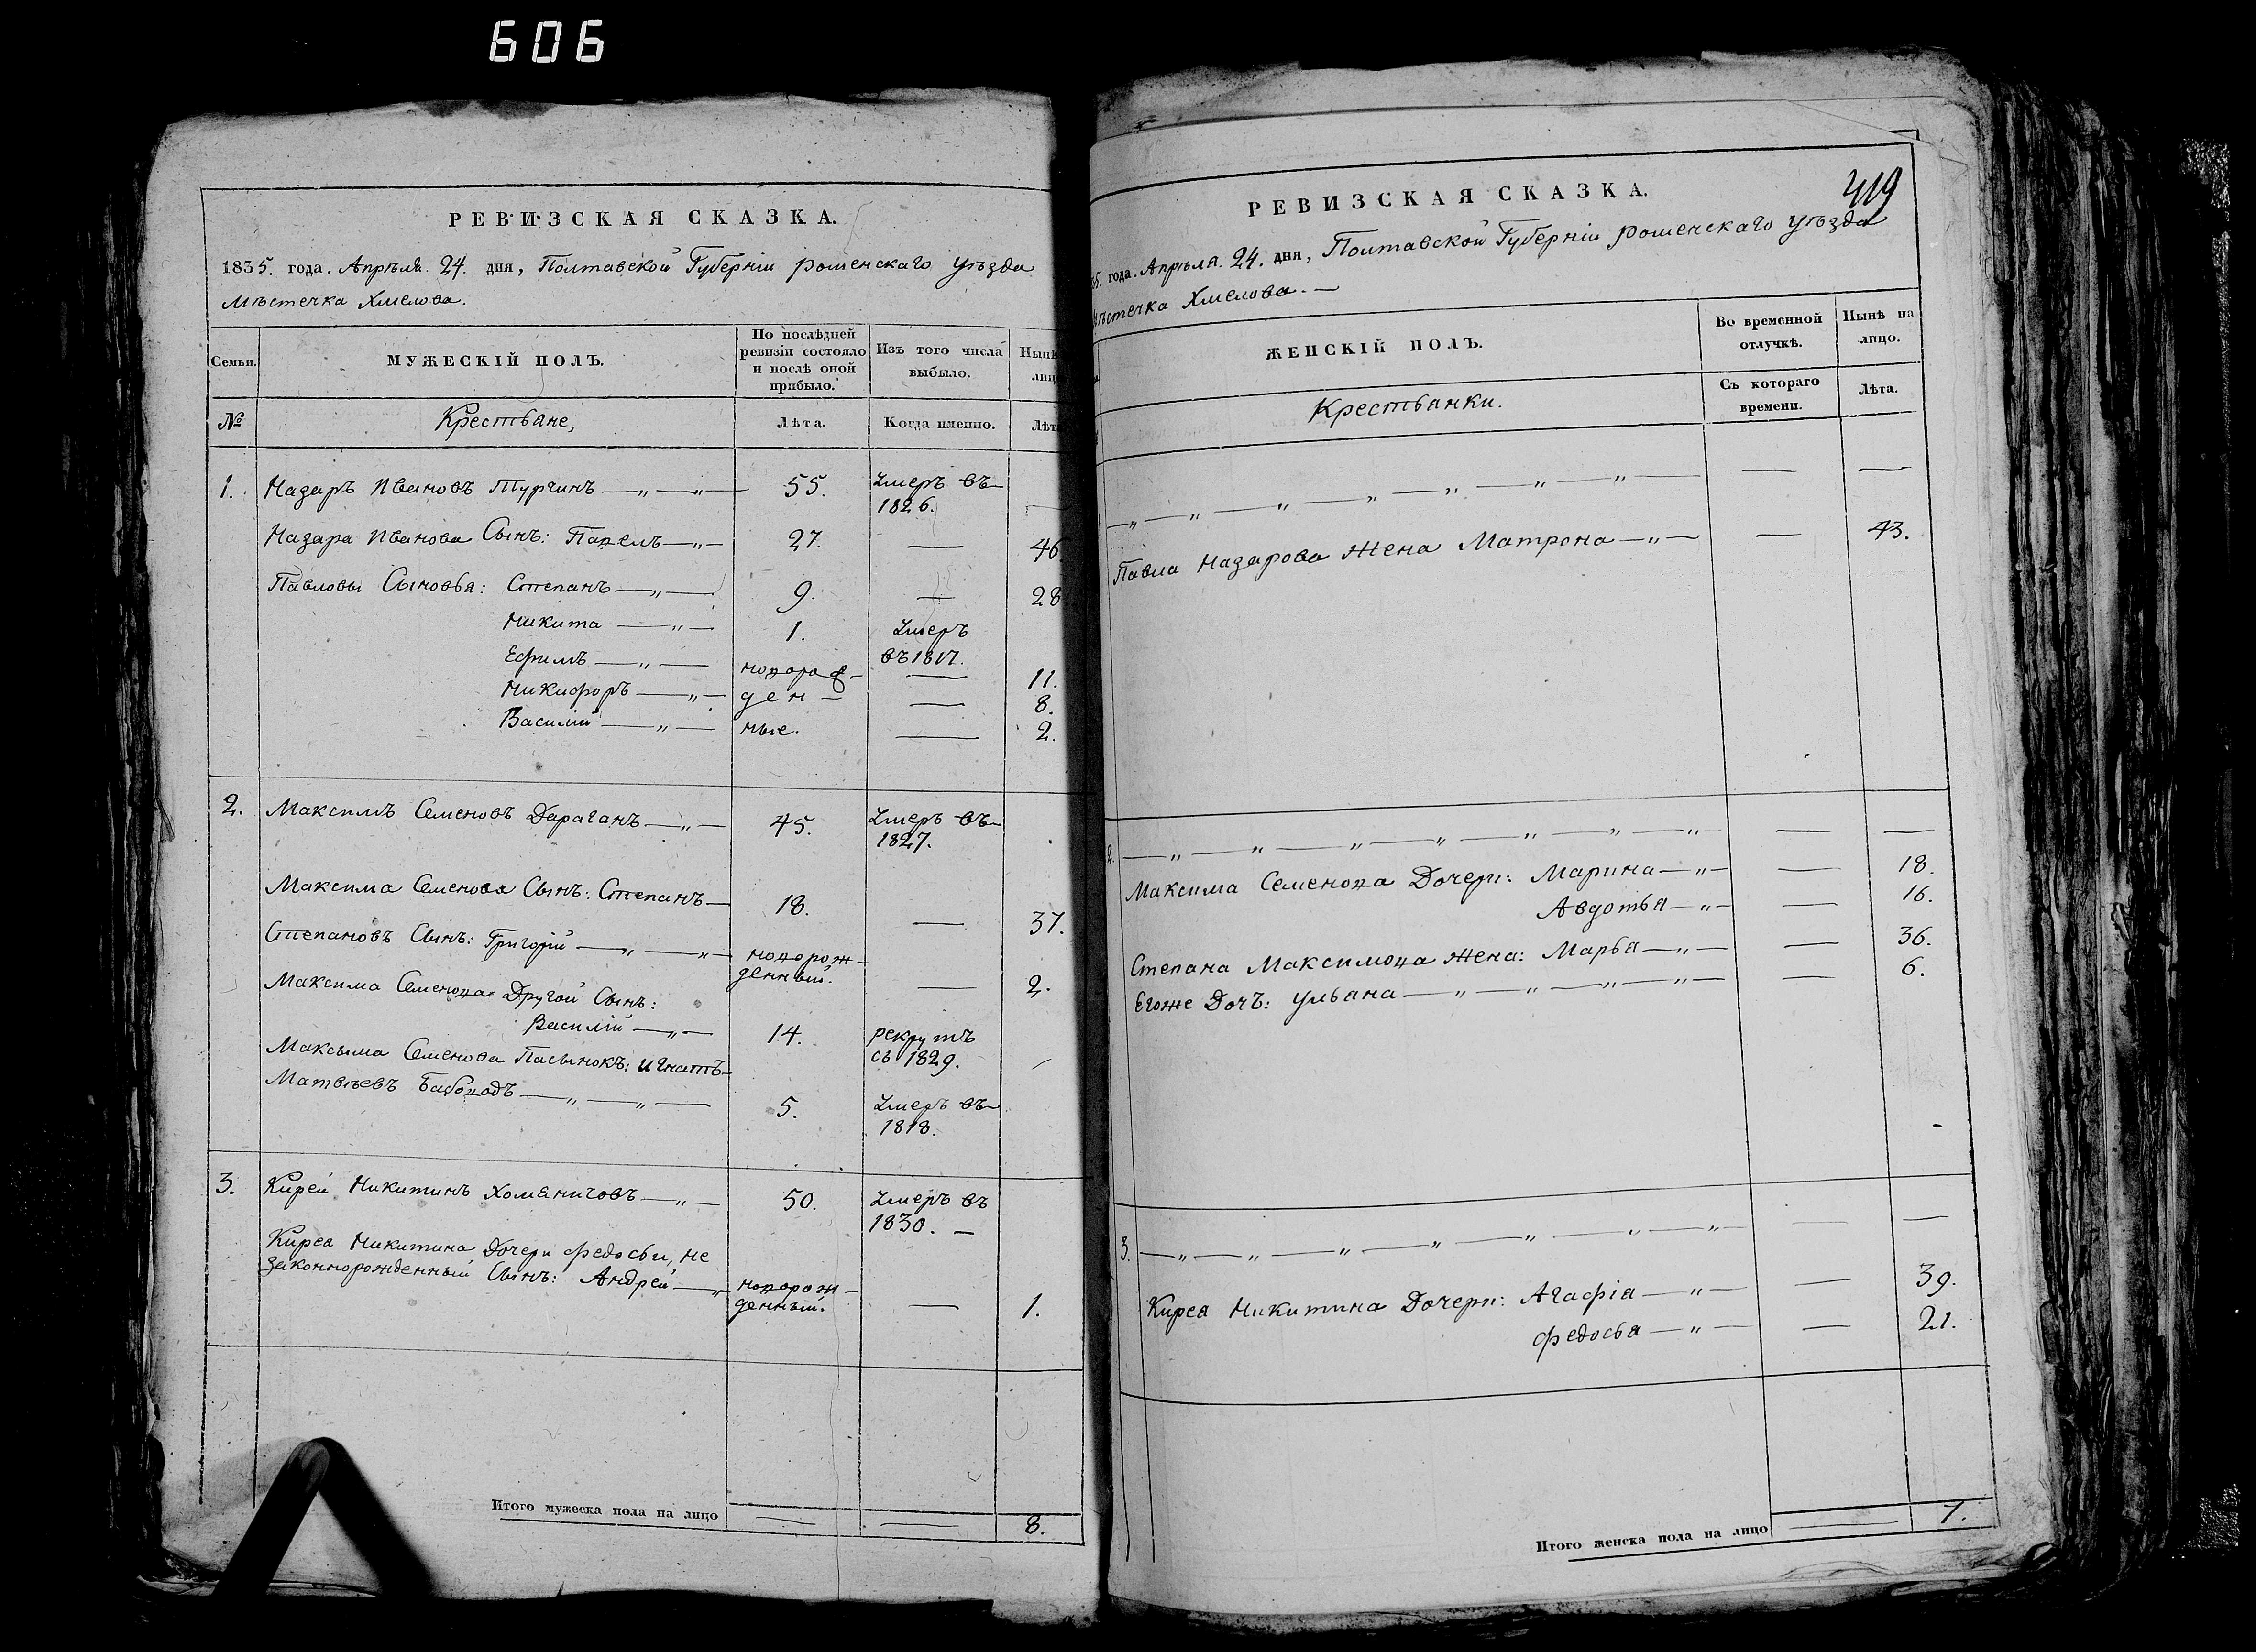 606
РЕВИЗСКАЯ СКАЗКА.
1835. года. Апрѣля. 24. дня, Полтавской Губерніи роменскаго уѣзда
Мѣстечка Хмелова.
Семьи.
МУЖЕСКІЙ ПОЛЪ.
По послѣдней ревизіи состояло и послѣ оной прибыло.
Изъ того числа выбыло.
Нынѣ
лиц
№
Крестьяне,
Лѣта.
Когда именно.
Лѣт
1. Назаръ Ивановъ Турчинъ 55. Умеръ въ
1826.
Назара Иванова Сынъ: Павелъ 27. — 46.
Павловы Сыновья: Степанъ 9. — 28
Никита 1. Умеръ
въ 1817.
Ефимъ новорож- — 11.
Никифоръ ден- — 8.
Василій ные. — 2.
2. Максимъ Семеновъ Дараганъ 45. Умеръ въ
1827.
Максима Семенова Сынъ: Степанъ 18. — 37.
Степановъ Сынъ: Григорій новорож-
денный. — 2.
Максима Семенова Другой Сынъ:
Василій 14. рекрутъ
съ 1829.
Максыма Семенова Пасынокъ: Игнатъ
Матвѣевъ 5. Умеръ въ
1818.
3. Кирей Никитинъ Хоманичовъ 50. Умеръ въ
1830. —
Кирея Никитина Дочери Федосьи, не
законнорожденный Сынъ: Андрей новорож-
денный. — 1.
Итого мужеска пола на лицо — — 8.
419
РЕВИЗСКАЯ СКАЗКА.
35. года. Апрѣля. 24. дня, Полтавской Губерніи роменскаго уѣзда
Мѣстечка Хмелова. —
ЖЕНСКІЙ ПОЛЪ.
Во временной отлучкѣ.
Нынѣ на лицо.
Крестьянки.
Съ котораго времени.
Лѣта.
Павла Назарова Жена Матрона — 43.
2.
Максима Семенова Дочери: Марина — 18.
Авдотья — 16.
Степана Максимова Жена: Марья — 36.
Егоже Дочъ: Ульяна — 6.
3.
Кирея Никитина Дочери: Агафія — 39.
Федосья — 21.
Итого женска пола на лицо — 7.